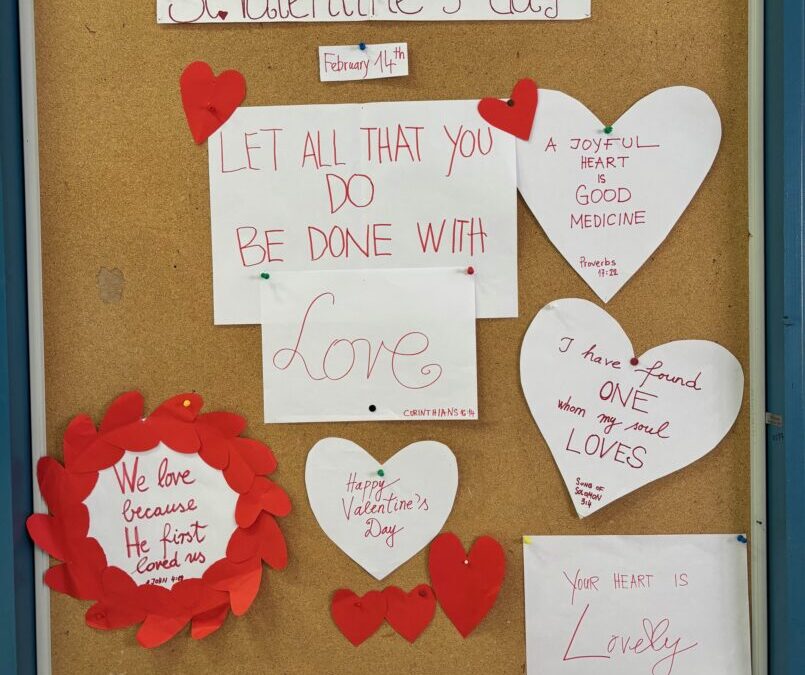 St. Valentine's day
February 14th
LET ALL THAT YOU
DO
BE DONE WITH
Love
CORINTHIANS 16:14
A JOYFUL
HEART
IS
GOOD
MEDICINE
Proverbs
17:22
I have found
ONE
whom my soul
LOVES
SONG OF
SOLOMON
3:4
We love
because
He first
loved us
1 JOHN 4:19
Happy
Valentine's
Day
YOUR HEART IS
Lovely